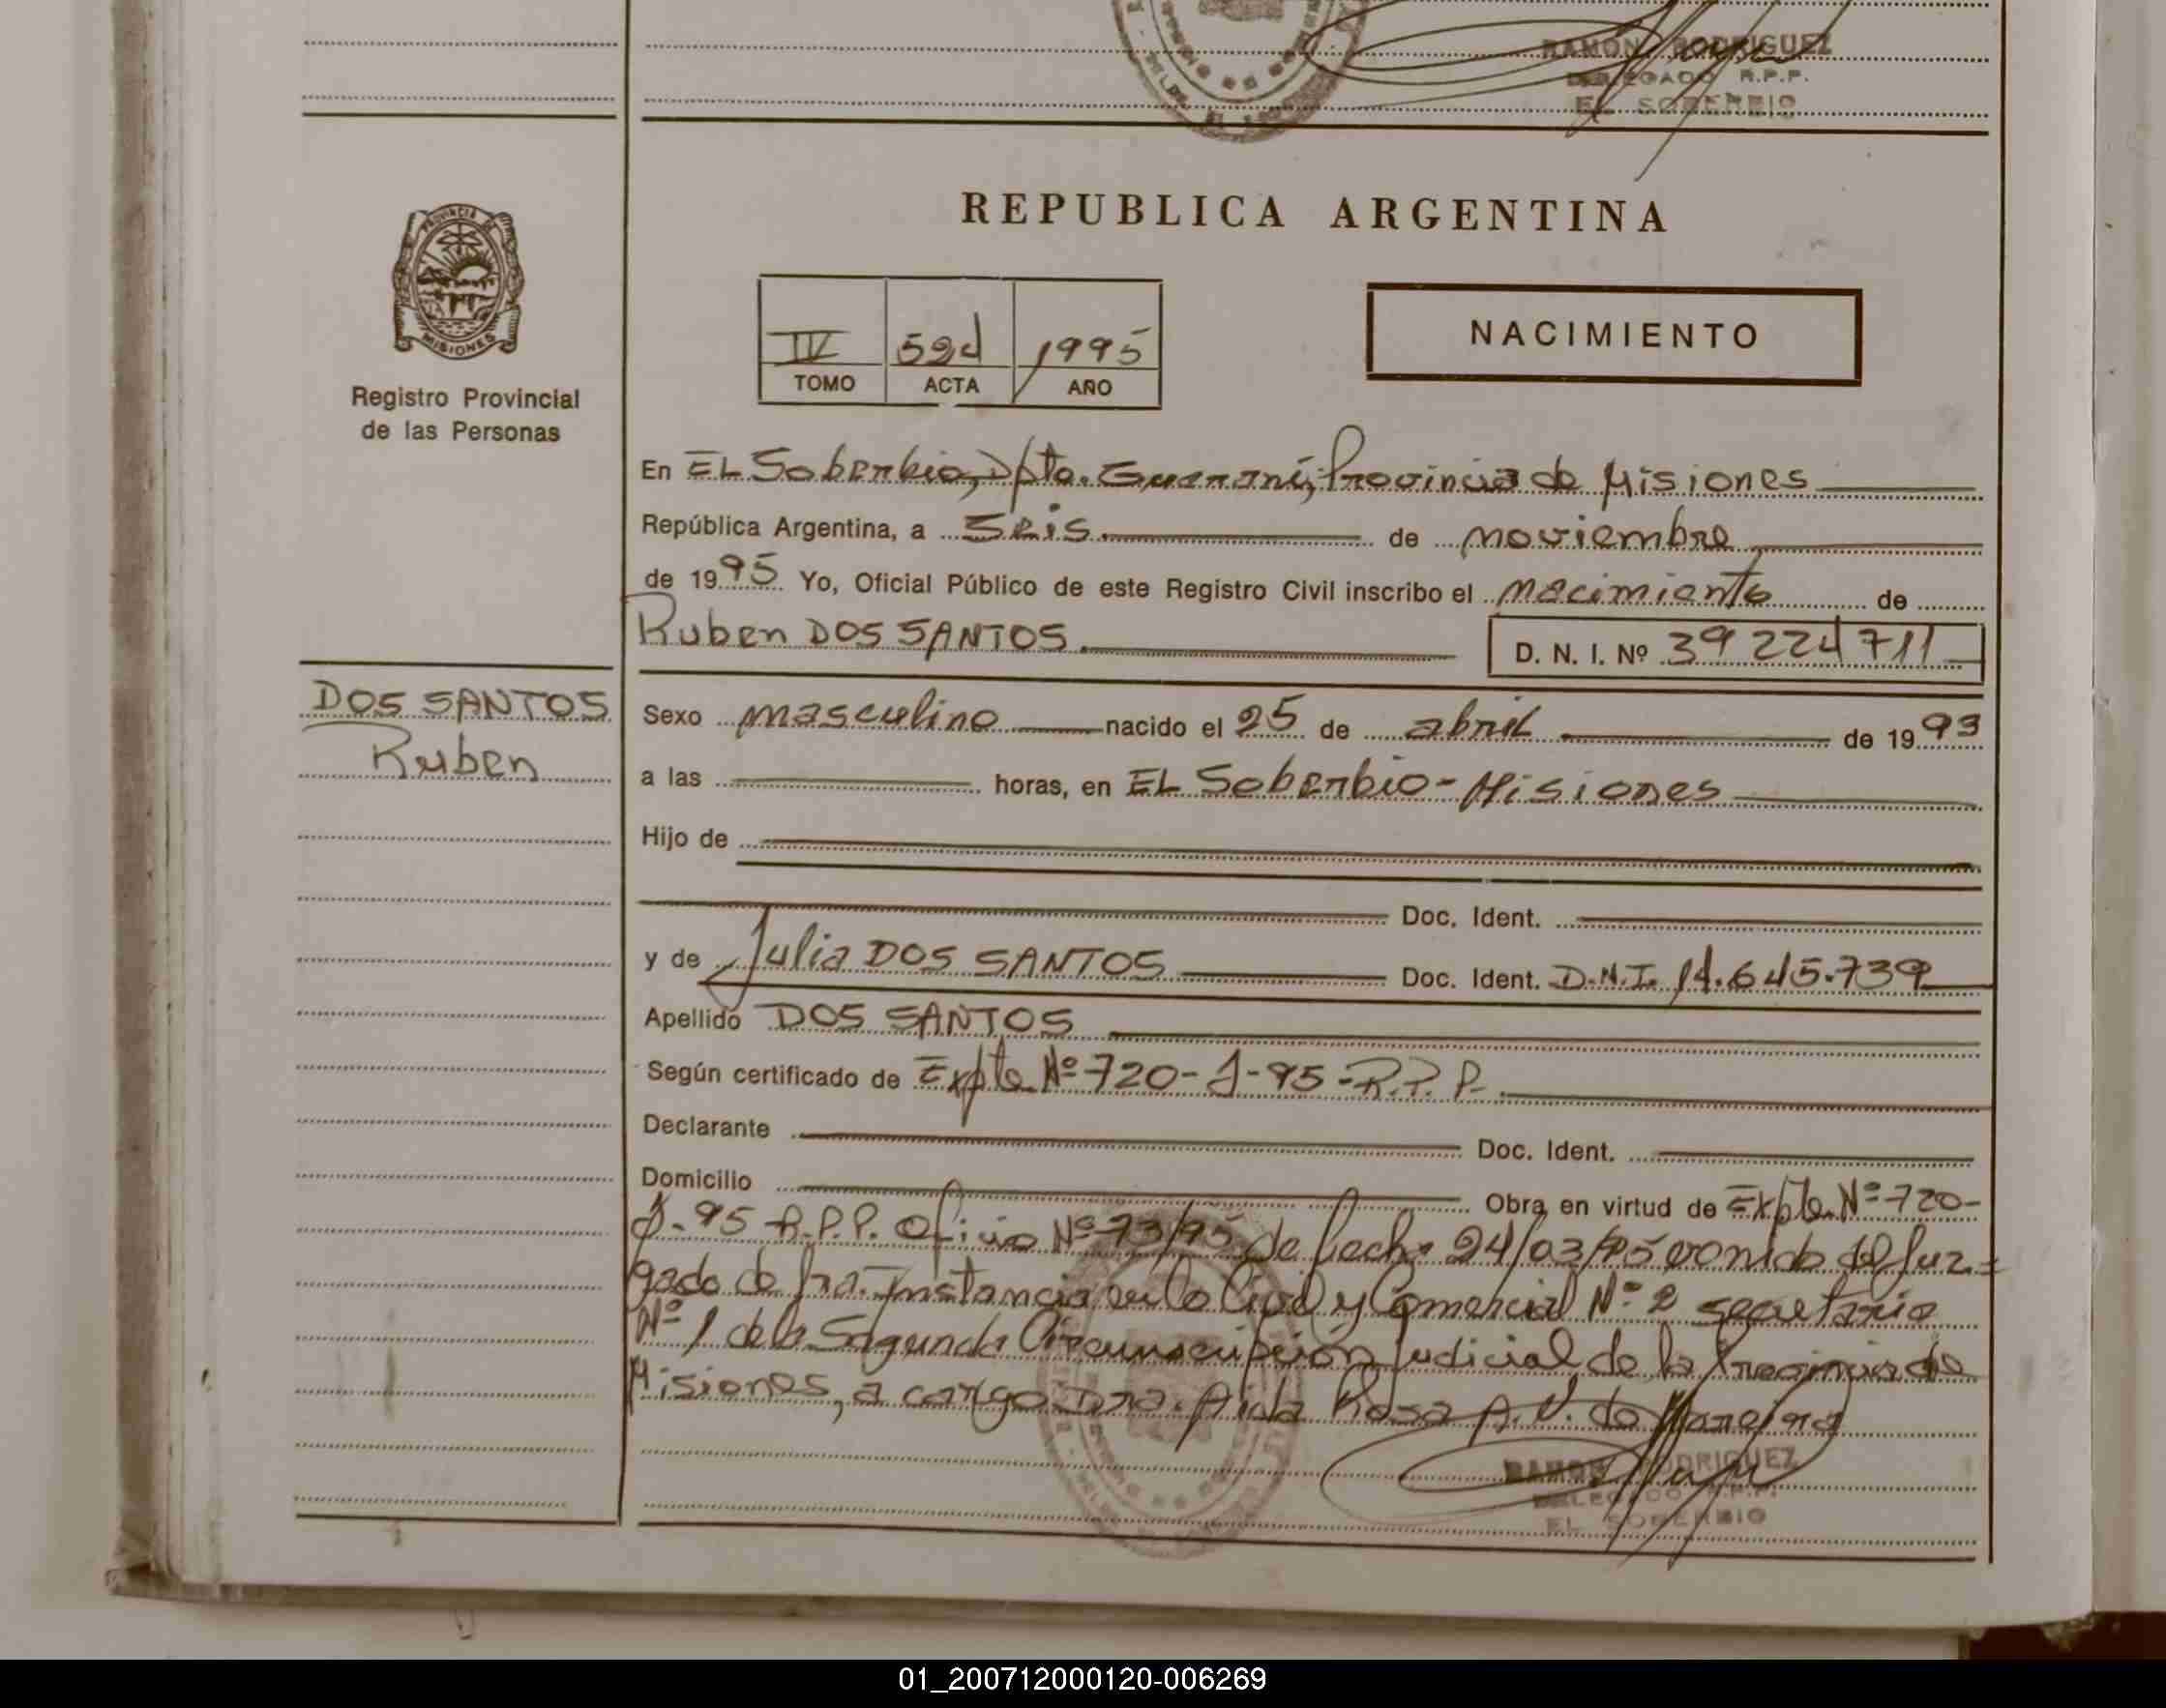 RAMON RODRIGUEZ
DELEGADO R.P.P.
EL SOBERBIO
REPUBLICA ARGENTINA
PROVINCIA DE
MISIONES
Registro Provincial
de las Personas
IV 524 1995
TOMO ACTA AÑO
NACIMIENTO
En EL Soberbio, Dpto. Guaraní, Provincia de Misiones
República Argentina, a seis de noviembre
de 1995 Yo, Oficial Público de este Registro Civil inscribo el nacimiento de
Ruben DOS SANTOS D. N. I. Nº 39 224 711
DOS SANTOS
Ruben
Sexo masculino nacido el 25 de abril de 1993
a las horas, en EL Soberbio - Misiones
Hijo de
Doc. Ident.
y de Julia DOS SANTOS Doc. Ident. D.N.I. 14.645.739
Apellido DOS SANTOS
Según certificado de Expte Nº 720-J-95-R.P.P.
Declarante Doc. Ident.
Domicilio Obra en virtud de Expte. Nº 720-
J-95 R.P.P. Oficio Nº 73/95 de fecha 24/03/95 del Juz=
gado de 1ra. Instancia en lo Civil y Comercial Nº 2 secretaria
Nº 1 de la Segunda Circunscripción Judicial de la Provincia de
Misiones, a cargo Dra. Aida Rosa A. V. de
RAMON RODRIGUEZ
DELEGADO R.P.P.
EL SOBERBIO
01_200712000120-006269